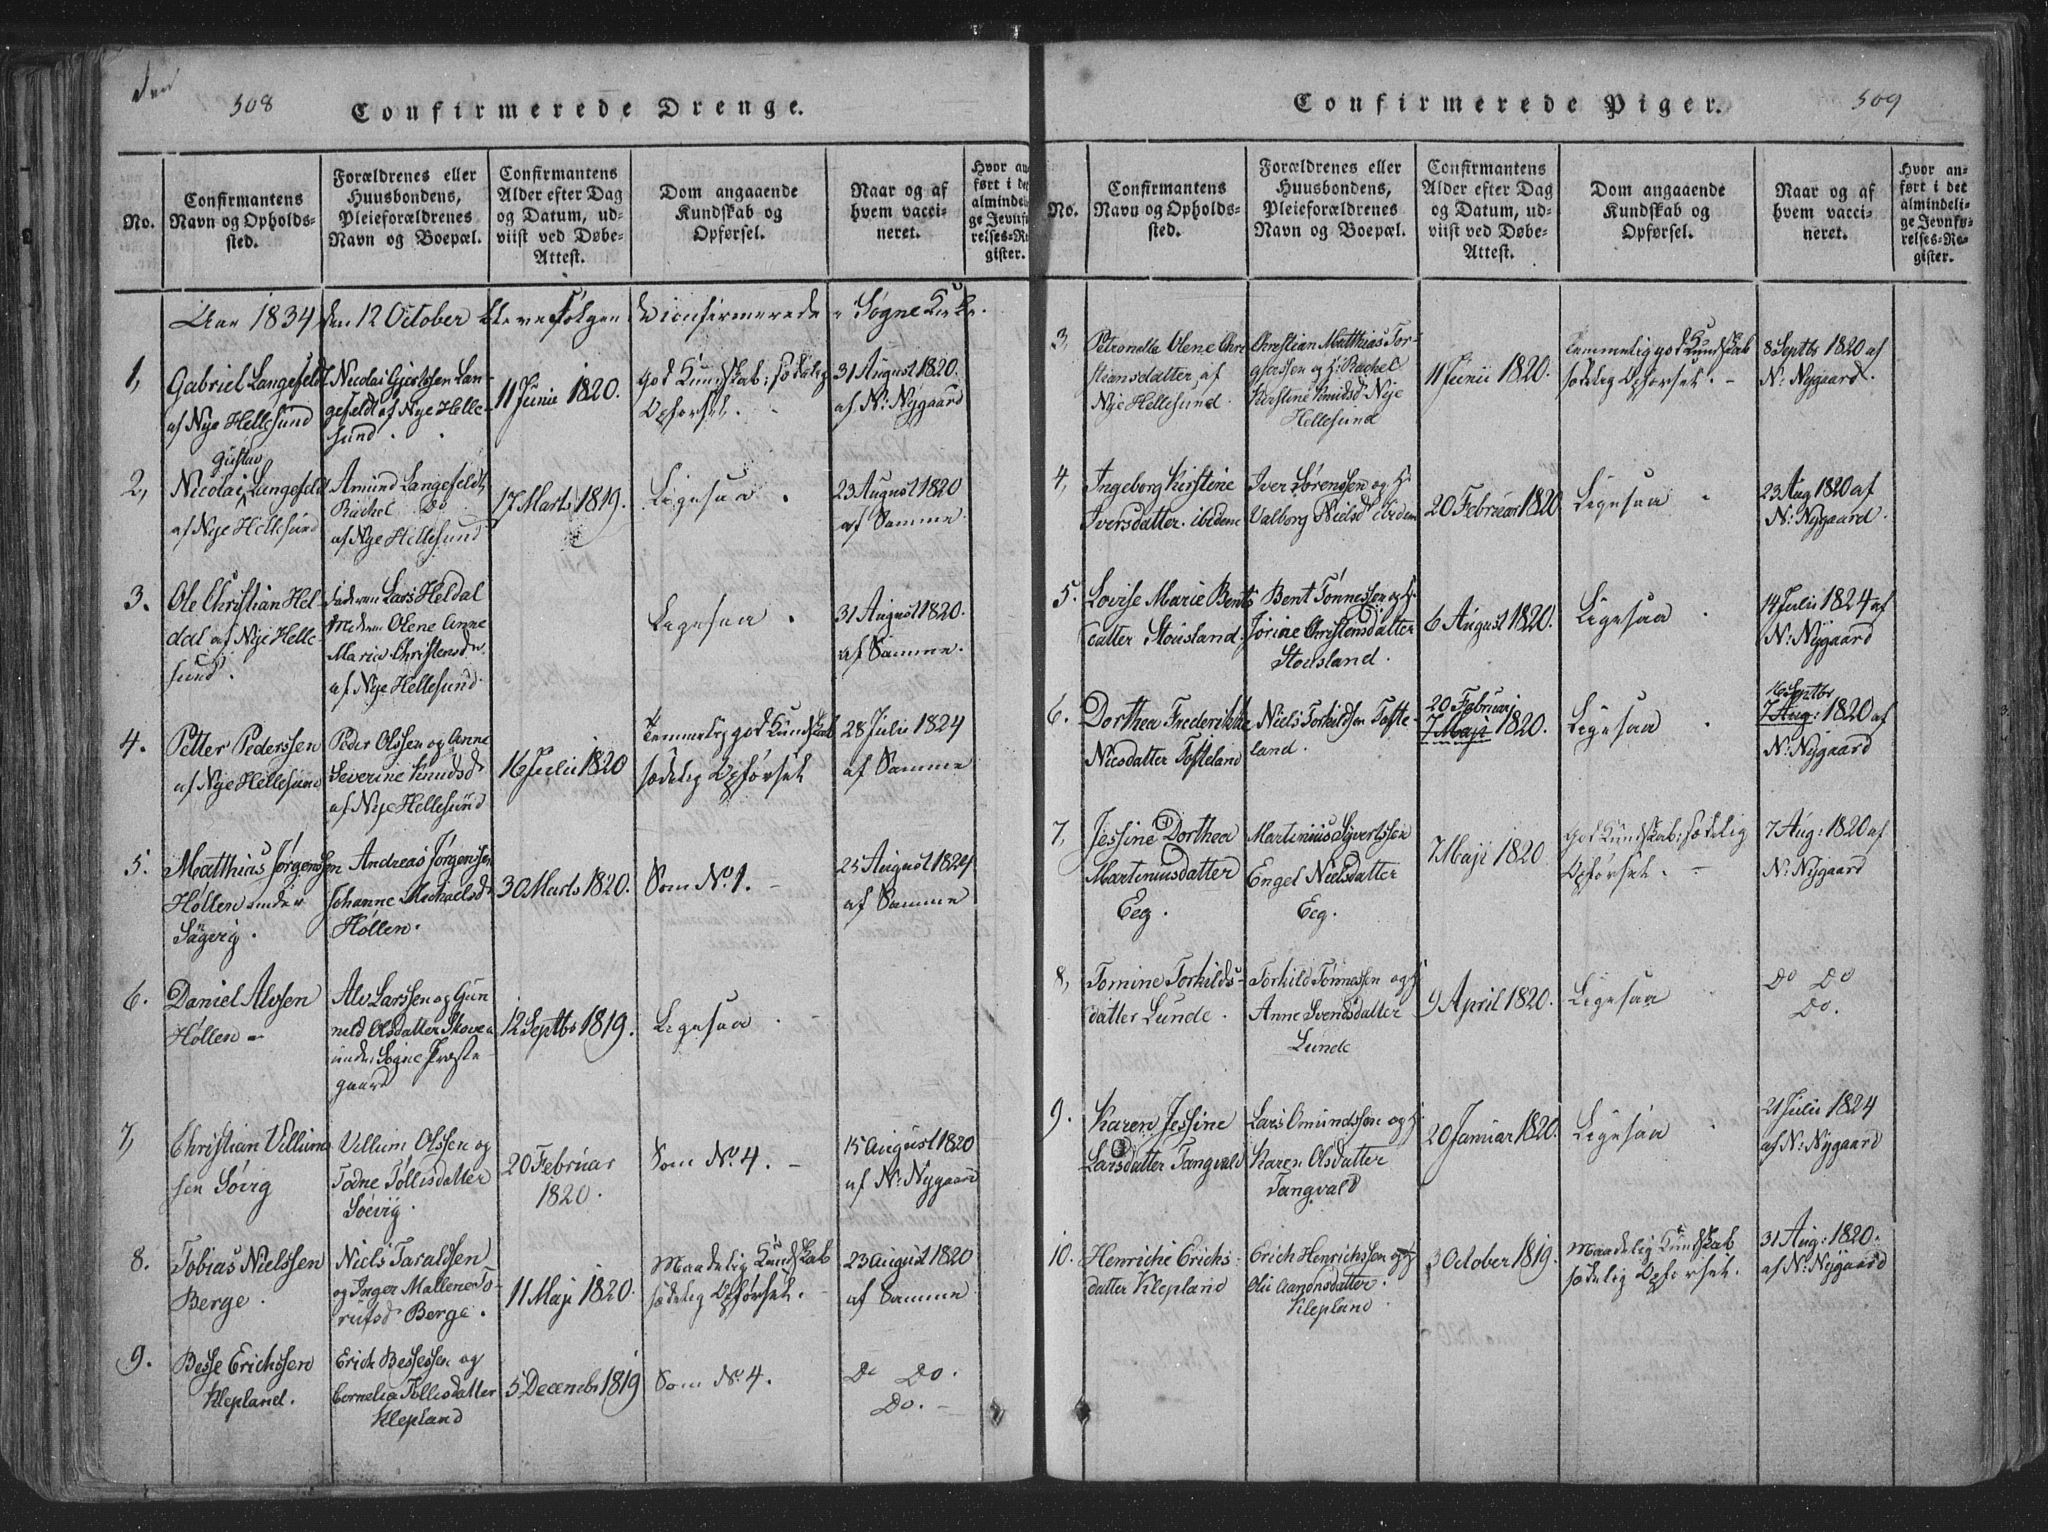 den
508
Confirmerede Drenge.
No.
Confirmantens
Navn og Opholds-
sted.
Forældrenes eller
Huusbondens,
Pleieforældrenes
Navn og Boepæl.
Confirmantens
Alder efter Dag
og Datum, ud-
viist ved Døbe-
Attest.
Dom angaaende
Kundskab og
Opførsel.
Naar og af
hvem vacci-
neret.
Hvor an-
ført i det
almindeli-
ge Jevnfø-
relses-Re-
gister.
Aar 1834 den 12 October bleve følgende confirmerede i Søgne Kirke.
1,
Gabriel Langefeldt
af Nye Hellesund
Nicolai Gjertssen Lan-
gefeldt af Nye Helle-
sund.
11 Junii 1820.
God Kundskab; sædelig
Opførsel.
31 August 1820.
af N: Nygaard
2,
Gustav
Nicolai Langefeldt
af Nye Hellesund
Amund Langefeldt,
Rachel Do
af Nye Hellesund
17 Marts 1819.
Ligesaa
23 August 1820
af Samme.
3.
Ole Christian Hel-
dal af Nye Helle-
sund.
Faderen Lars Heldal
Moderen Olene Anne
Maria Christensdr.
af Nye Hellesund.
Ligesaa
31 August 1820.
af Samme.
4.
Petter Pederssen
af Nye Hellesund
Peder Olssen og Anne
Severine Knudsd
af Nye Hellesund
16 Julii 1820
Temmelig god Kundskab
sædelig Opførsel
28 Julii 1824
af Samme
5.
Matthias Jørgenssen
Høllen under
Søgvig.
Andreas Jørgenssen
Johanne Michaelsd
Høllen.
30 Marts 1820.
Som No. 1.
25 August 1824
af Samme
6.
Daniel Alvsen
Høllen
Alv Larssen og Gun
neld Olsdatter Skoven
under Sogne Præste-
gaard
12 Septbr 1819.
Ligesaa
7,
Christian Villum
sen Søvig
Villum Olssen og
Todne Tollisdatter
Søevig.
20 Februar
1820.
Som No. 4.
15 August 1820
af N: Nygaard
8.
Tobias Nielssen
Berge.
Niels Taraldsen
og Inger Mallene To-
rufsd Berge.
11 Maji 1820.
Maadelig Kundskab
sædelig Opførsel.
23 August 1820
af Samme
9.
Besse Erichssen
Klepland.
Erich Bessessen og
Cornelia Tollisdatter
Klepland
5 Decembr 1819
Som No. 4.
Do Do.
Do.
Confirmerede Piger.
509
No.
Confirmantens
Navn og Opholds-
sted.
Forældrenes eller
Huusbondens,
Pleieforældrenes
Navn og Boepæl.
Confirmantens
Alder efter Dag
og Datum, ud-
viist ved Døbe-
Attest.
Dom angaaende
Kundskab og
Opførsel.
Naar og af
hvem vacci-
neret.
Hvor an-
ført i det
almindeli-
ge Jevnfø-
relses-Re-
gister.
3,
Petronelle Olene Chri
stiansdatter, af
Nye Hellesund.
Christian Matthias Tor-
gerssen og H: Rachel
Kirstine Knudsd Nye
Hellesund
11 Junii 1820.
Temmelig god Kundskab
sædelig Opførsel.
8 Septbr 1820 af
N: Nygaard.
4,
Ingeborg Kirstine
Iversdatter. ibidem
Iver Sørenssen og H:
Valborg Nielsd ibidem
20 Februar 1820
Ligesaa
23 Aug 1820 af
N: Nygaard.
5.
Lovise Marie Bents
datter Stousland.
Bent Tønnessen og H:
Jørine Christensdatter
Stousland.
6 August 1820.
Ligesaa
14 Julii 1824 af
N: Nygaard
6.
Dorthea Frederikke
Nielsdatter Tofteland
Niels Torkildsen Tofte-
land.
20 Februar
7 Maji 1820.
Ligesaa
16 Septbr
7 Aug: 1820 af
N: Nygaard
7,
Jessine Dorthea
Martiniusdatter
Eeg.
Martinius Syvertssen
Engel Nielsdatter
Eeg.
7 Maji 1820
God Kundskab; sædelig
Opførsel.
7 Aug: 1820 af
N: Nygaard
8,
Tomine Torkilds-
datter Lunde.
Torkild Tønnessen og H:
Anne Svendsdatter
Lunde
9 April 1820.
Ligesaa
Do Do
Do.
9.
Karen Jessine
Larsdatter Tangvald
Lars Omundssen og H:
Karen Olsdatter
Tangvald
20 Januar 1820.
Ligesaa
21 Julii 1824
af N: Nygaard
10.
Henriche Erichs-
datter Klepland
Erich Henrichssen og H:
Olii Aandnsdatter.
Klepland
3 October 1819.
Maadelig Kundskab
sædelig Opførsel.
31 Aug: 1820.
af N: Nygaard